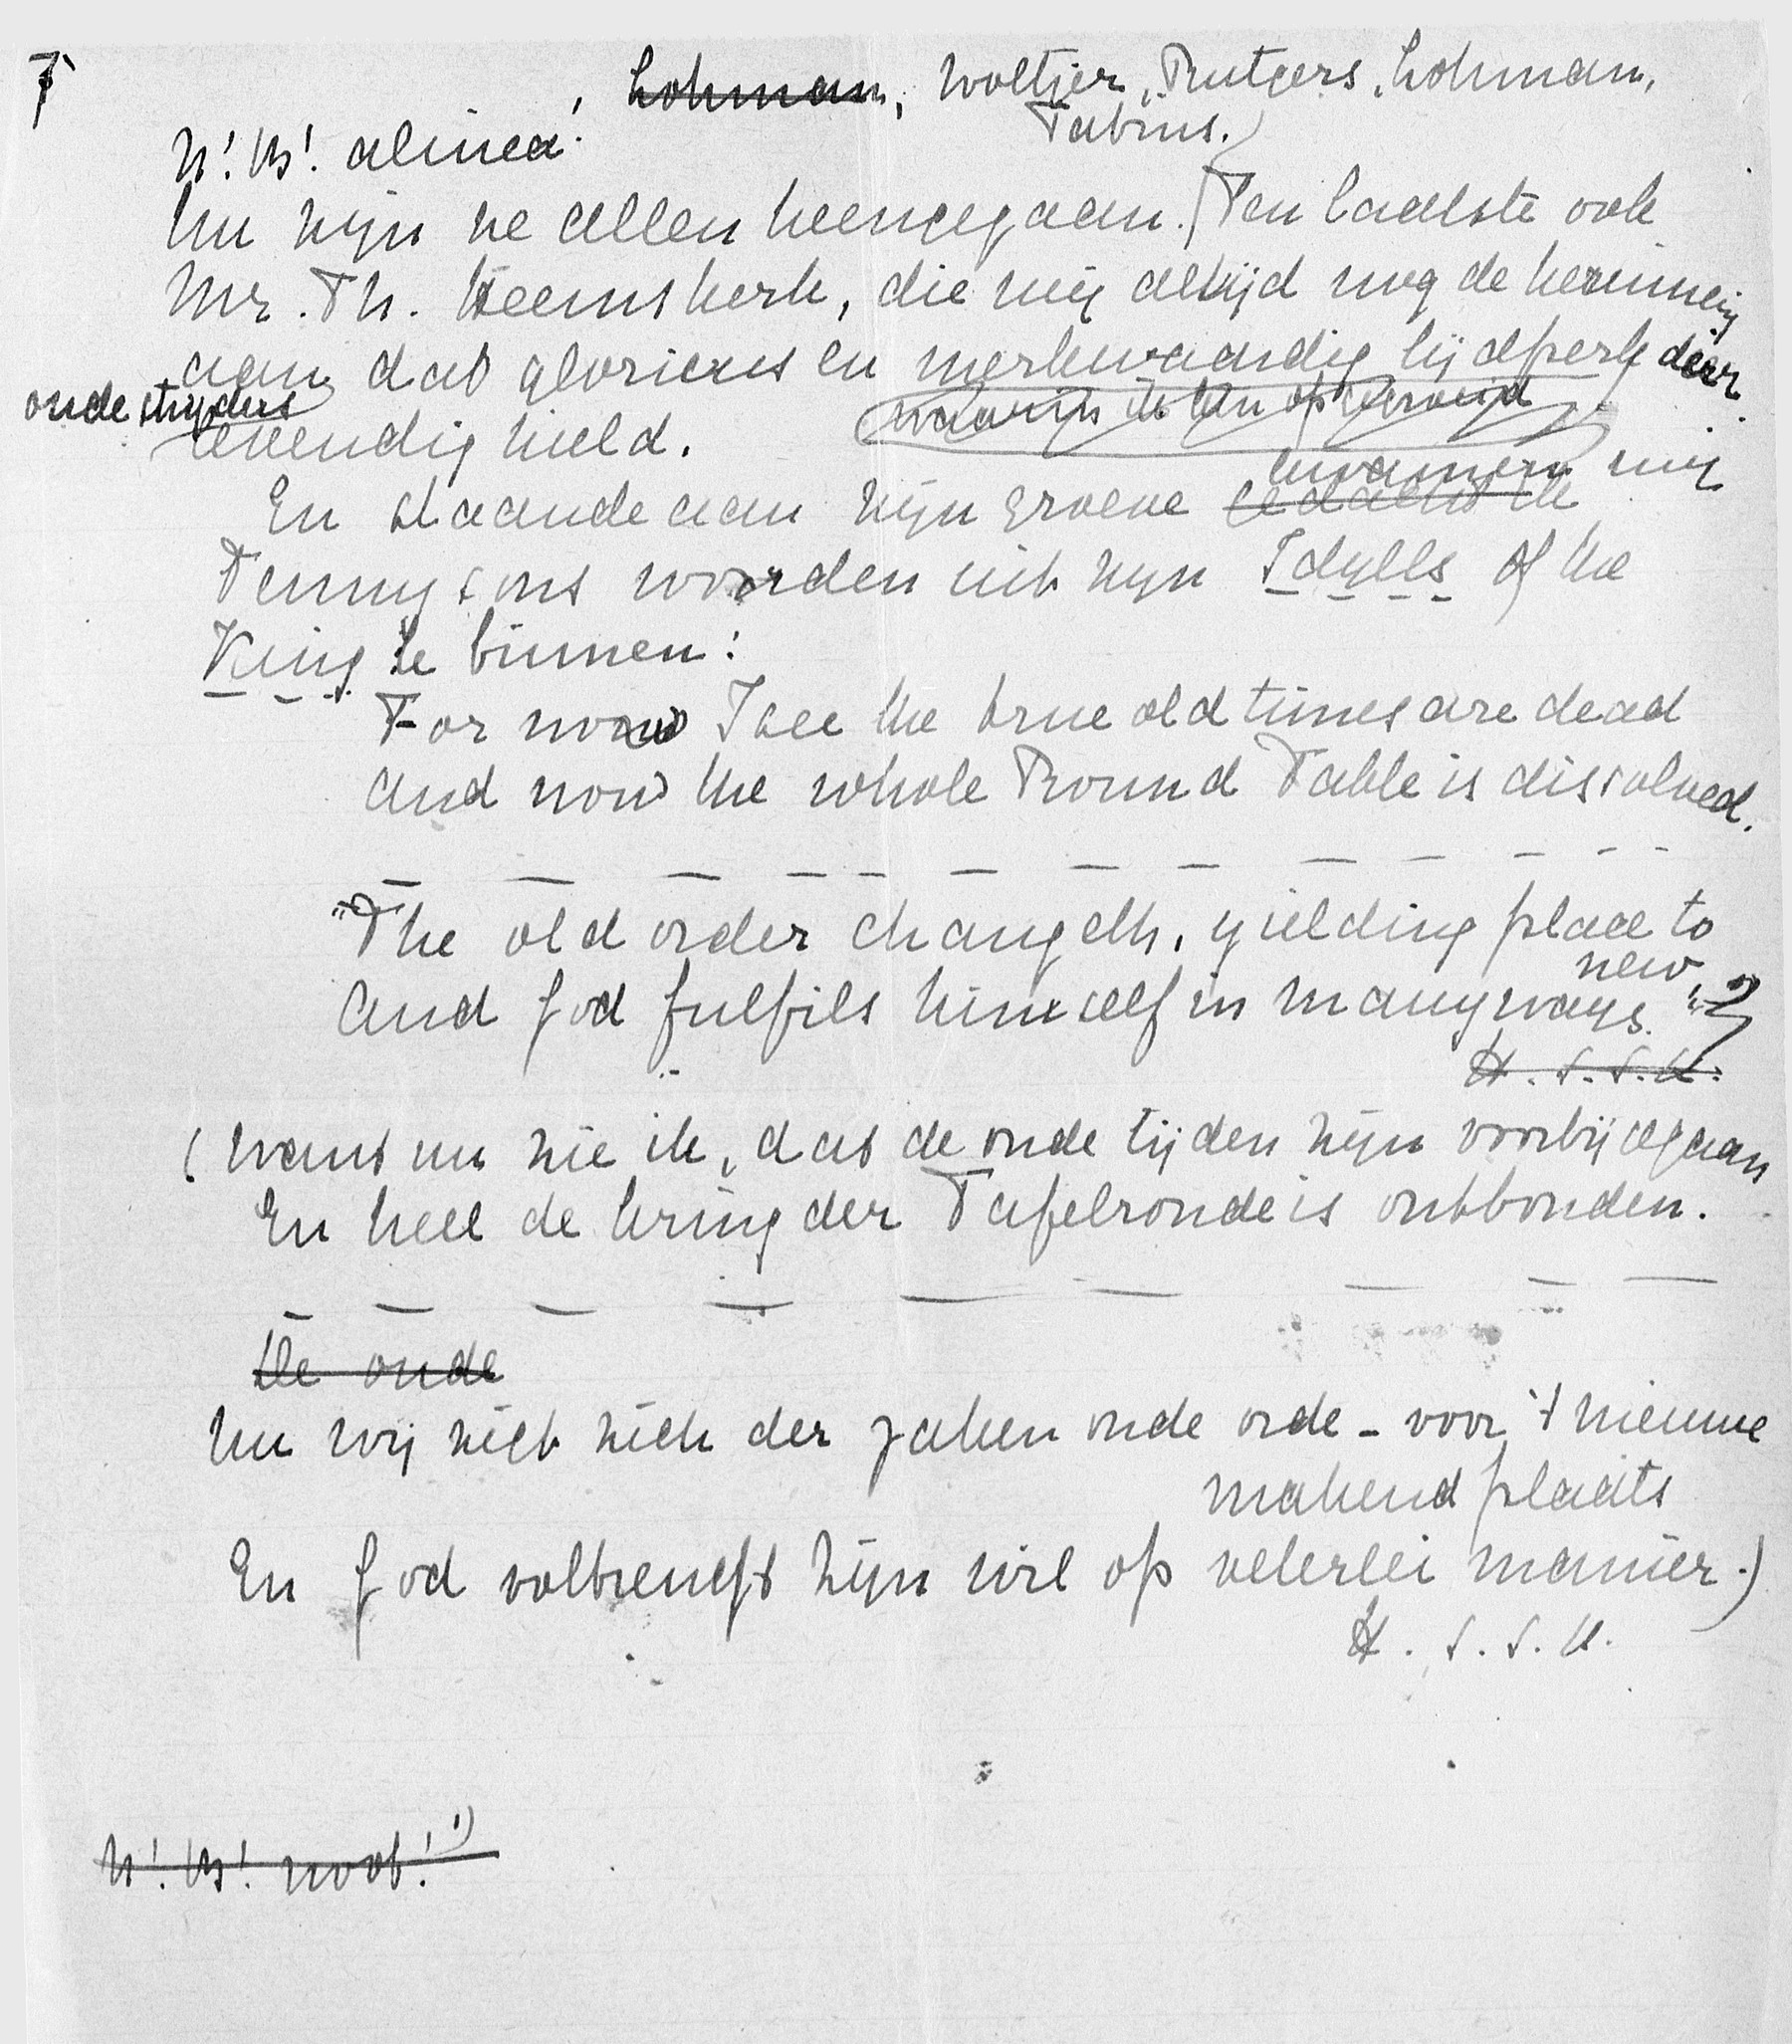 7
, Lohman, Woltjer, Rutgers, Lohman,
Fabius.
N! B! alinea!
Nu zijn ze allen heengegaan. Ten laatste ook
Mr. Th. Heemskerk, die mij altijd nog de herinnering
aan dat glorieus en merkwaardig tijdperk der
oude strijders
waarin ik ben opgevoed
levendig hield.
kwamen mij
En staande aan zijn groeve gedacht ik
Tennysons woorden uit zijn Idylls of the
King te binnen:
For now I see the true old times are dead
And now the whole Round Table is dissolved.
"The old order changeth, yielding place to
new,
And God fulfils himself in many ways."
H. S. S. K.
(Want nu zie ik, dat de oude tijden zijn voorbijgegaan
En heel de kring der Tafelronde is ontbonden.
De oude
Nu wijzigt zich der zaken oude orde - voor 't nieuwe
makend plaats
En God volbrengt zijn wil op velerlei manier.)
H. S. S. K.
N! B! noot! 1)